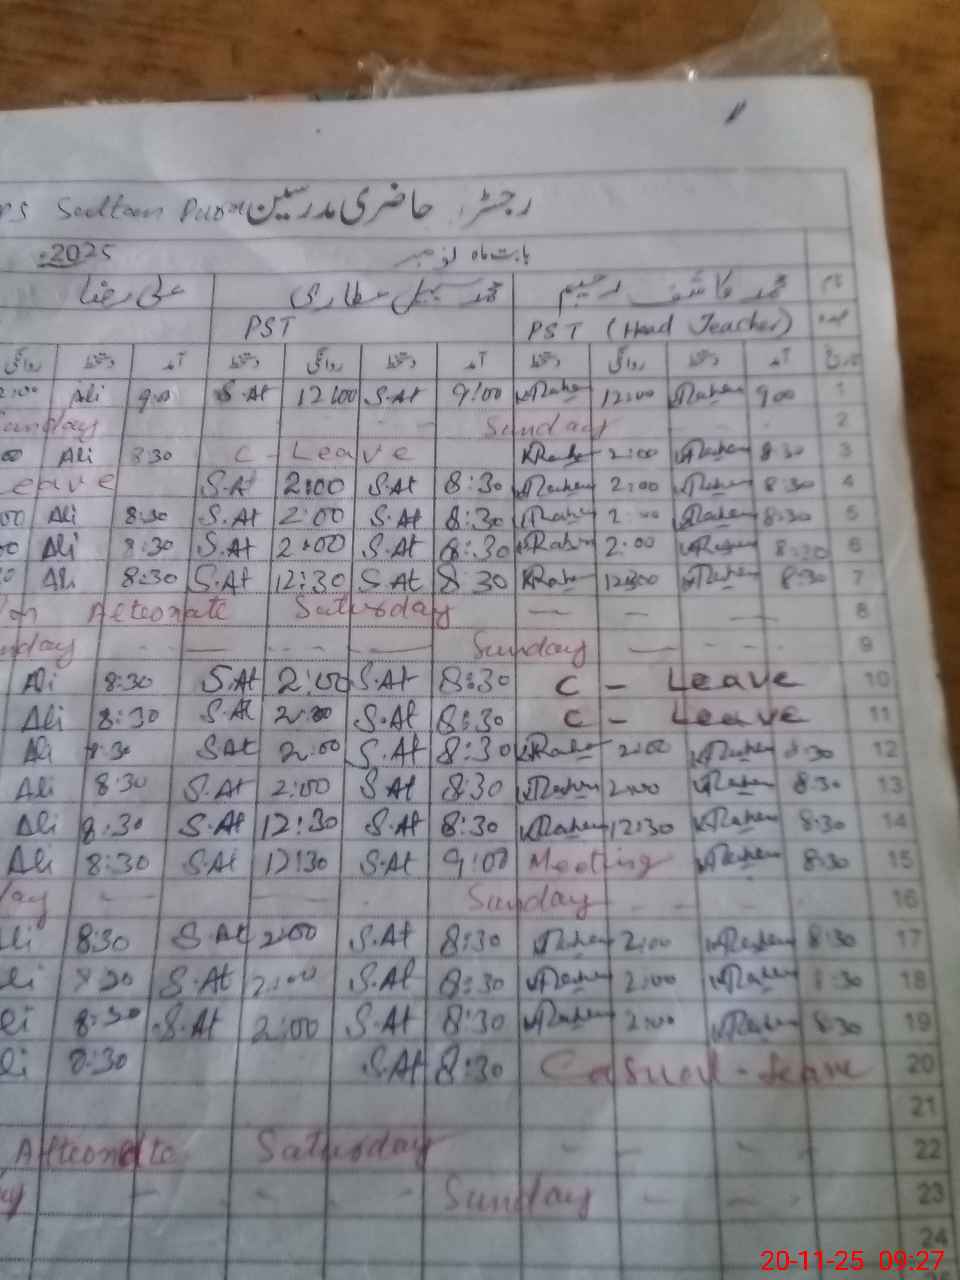 PS Sultan Pura رجسٹر حاضری مدرسین
2025 بابت ماہ نومبر
علی رضا محمد سہیل عطاری محمد کاشف رحیم نام
PST PST (Head Teacher) عہدہ
روانگی دستخط آمد دستخط روانگی دستخط آمد دستخط روانگی دستخط آمد تاریخ
Ali 9:0 S.At 12:00 S.At 9:00 Rahem 12:00 Rahem 9:00 1
Sunday Sunday 2
00 Ali 8:30 C - Leave Rahem 2:00 Rahem 8:30 3
Leave S.At 2:00 S.At 8:30 Rahem 2:00 Rahem 8:30 4
00 Ali 8:30 S.At 2:00 S.At 8:30 Rahem 2:00 Rahem 8:30 5
Ali 8:30 S.At 2:00 S.At 8:30 Rahem 2:00 Rahem 8:30 6
Ali 8:30 S.At 12:30 S.At 8:30 Rahem Rahem 8:30 7
Alteonate Saturday — — — 8
nday - - - — — Sunday — - - - 9
Ali 8:30 S.At 2:00 S.At 8:30 C - Leave 10
Ali 8:30 S.At 2:00 S.At 8:30 C - Leave 11
Ali 8:30 S.At 2:00 S.At 8:30 Rahem 2:00 Rahem 8:30 12
Ali 8:30 S.At 2:00 S.At 8:30 Rahem 2:00 Rahem 8:30 13
Ali 8:30 S.At 12:30 S.At 8:30 Rahem 12:30 Rahem 8:30 14
Ali 8:30 S.At 12:30 S.At 9:00 Meeting Rahem 8:30 15
day Sunday 16
li 8:30 S.At 2:00 S.At 8:30 Rahem 2:00 Rahem 8:30 17
li S.At 2:00 S.At 8:30 Rahem 2:00 Rahem 8:30 18
li 8:30 S.At 2:00 S.At 8:30 Rahem 2:00 Rahem 8:30 19
li 8:30 S.At 8:30 Casual - Leave 20
21
Alteonate Saturday 22
Sunday 23
24
20-11-25 09:27